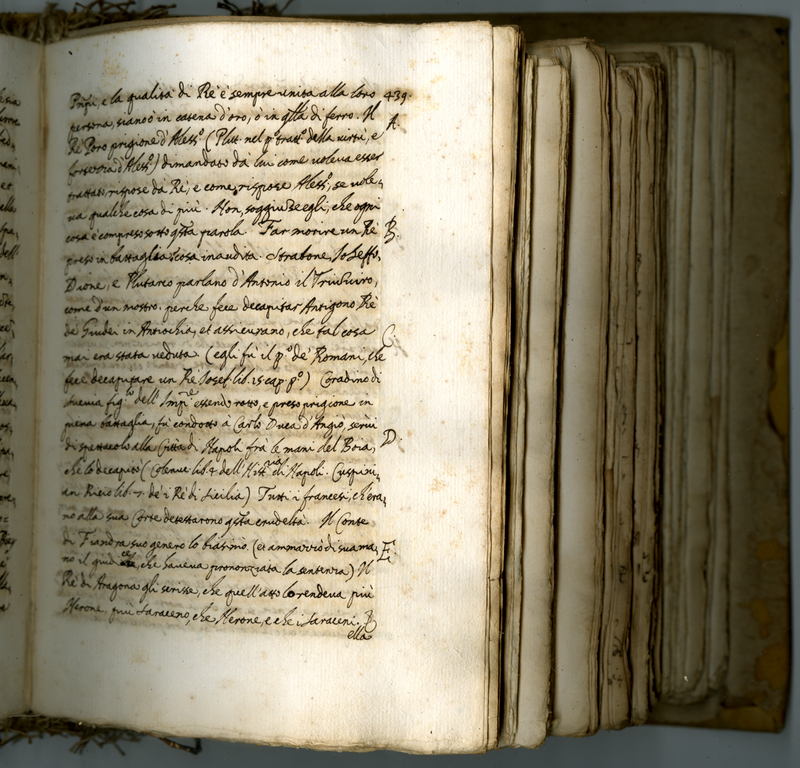 Prñpi, e la qualità di Rè è sempre unita alla loro 439.
persona, siano ò in catena d'oro, ò in qlla di ferro. Il A.
Rè Poro prigione d'Aless.º (Plut. nel pº tratt.º della virtù, e
fortezza d'Aless.º) dimandato dà lui come voleva esser
trattato, rispose dà Rè, e come rispose Aless.º, se vole-
va qualche cosa di più. Non, soggiunse egli, che ogni
cosa è compreso sotto qsta parola. Far morire un Rè B.
preso in battaglia è cosa inaudita. Strabone, Ioseffo,
Dione, e Plutarco parlano d'Antonio il Triumviro,
come d'un mostro, perche fece decapitar Antigono Rè
de Giudei in Antiochia, et assicurano, che tal cosa C.
mai era stata veduta (egli fù il pº de' Romani, che
fece decapitare un Rè Iosef. lib. 15 cap. pº) Coradino di
Suevia fig.lo dell'Imp.re essendo rotto, e preso prigione in
piena battaglia, fù condotto a Carlo Duca d'Angiò, servì
di spettacolo alla Città di Napoli frà le mani del Boia, D.
che lo decapitò (Colenuc. lib. 4 dell'Hist.ria di Napoli. Cuspini-
an Riccio lib. 7. de' i Rè di Sicilia) Tutti i francesi, ch'era-
no alla sua Corte detestarono qsta crudeltà. Il Conte
di Fiandra suo genero lo biasimò. (et ammazzò di sua ma- E.
no il giudice, che haveva prononziata la sentenza) Il
Rè di Aragona gli scrisse, che quell'atto lo rendeva più
Nerone, più Saraceno, che Nerone, e che i Saraceni.
ella